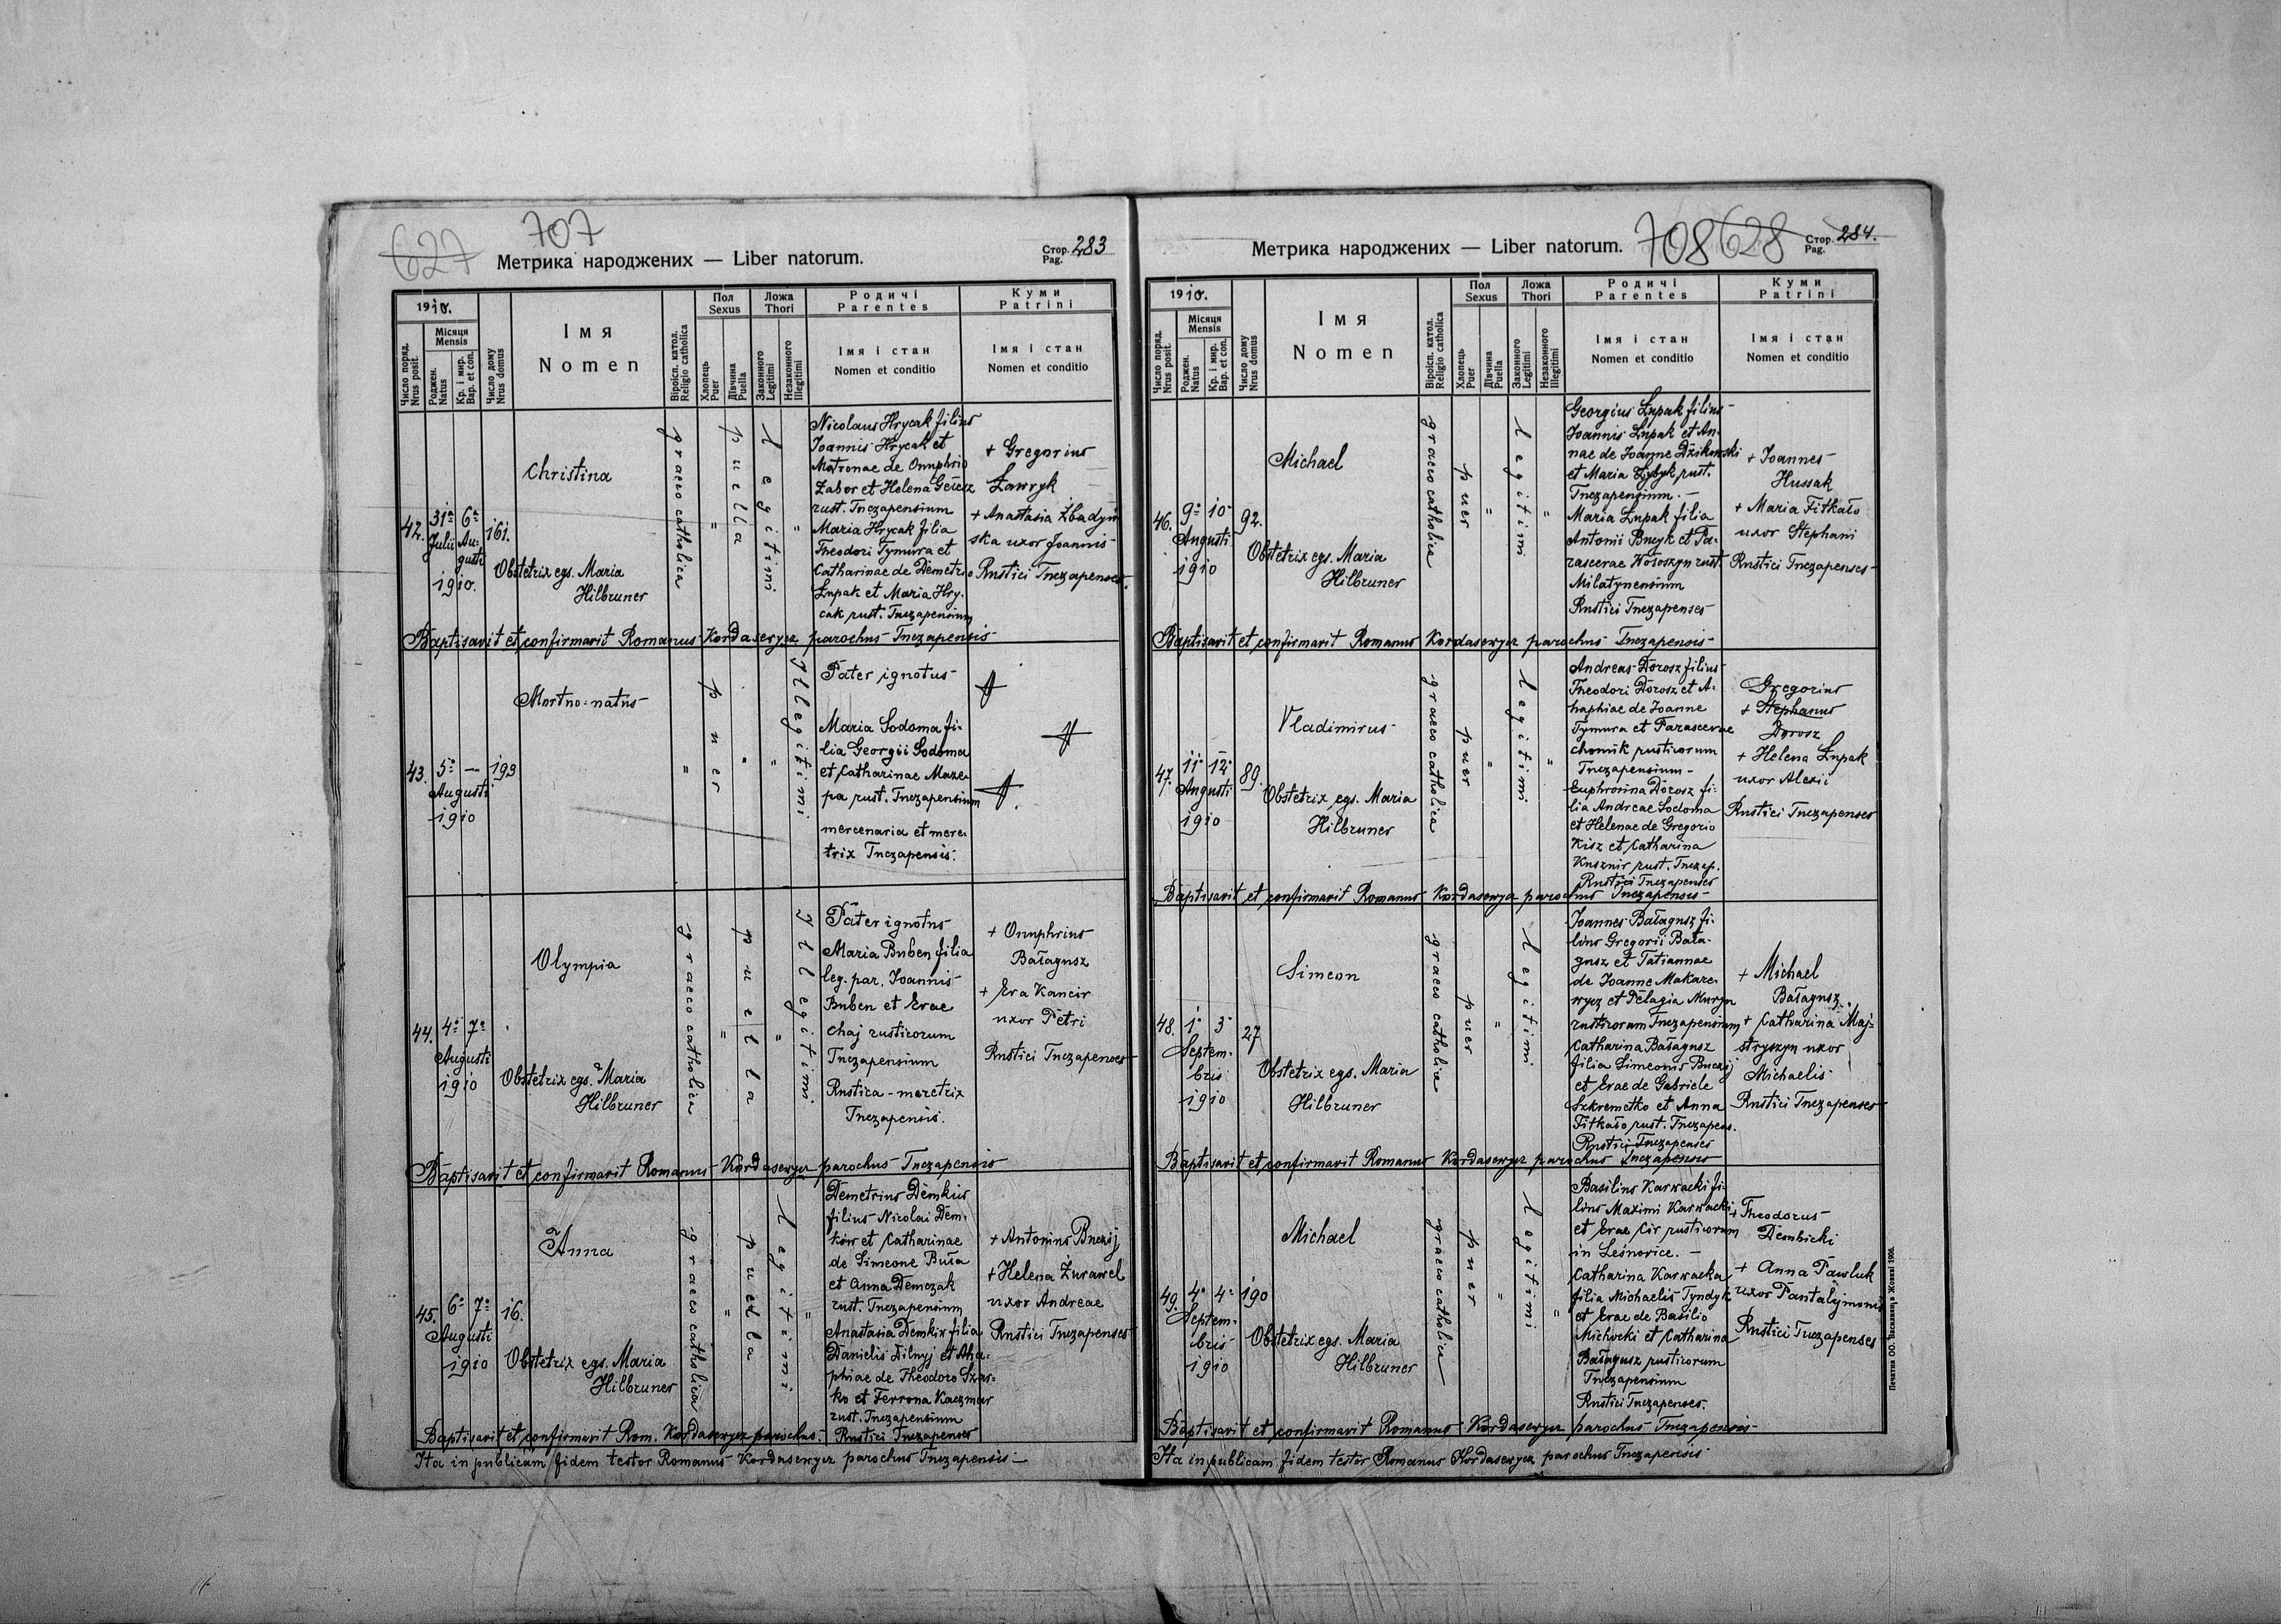 627
707
Метрика народжених — Liber natorum.
Стор. 283
Pag.
1910.
Число поряд.
Nrus posit.
Місяця
Mensis
Роджен.
Natus
Кр. і мир.
Bap. et con.
Число дому
Nrus domus
Імя
Nomen
Віроісп. катол.
Religio catholica
Пол
Sexus
Хлопець
Puer
Дівчина
Puella
Ложа
Thori
Законного
Legitimi
Незаконного
Illegitimi
Родичі
Parentes
Імя і стан
Nomen et conditio
Куми
Patrini
Імя і стан
Nomen et conditio
42.
31ª 6ª
Julii Au-
gusti
1910.
161.
Christina
Obstetrix egs. Maria
Hilbruner
graeco catholica
"
puella
legitimi
"
Nicolaus Hrycak filius
Joannis Hrycak et
Matronae de Onuphrio
Zabor et Helena
rust. Tuczapensium
Maria Hrycak filia
Theodori Tymura et
Catharinae de Demetrio
Łupak et Maria Hry-
cak rust. Tuczapensium
+ Gregorius
Ławryk
+ Anastasia Zbadyń
ska uxor Joannis
Rustici Tuczapenses.
Baptisavit et confirmavit Romanus Kordasewycz parochus Tuczapensis
43.
5ª —
Augusti
1910
193
Mortno-natus
"
puer
"
"
Illegitimi
Pater ignotus
Maria Sodoma fi-
lia Georgii Sodoma
et Catharinae Maze-
pa rust. Tuczapensium
mercenaria et mere-
trix Tuczapensis.
44.
4ª 7ª
Augusti
1910
Olympia
Obstetrix egs. Maria
Hilbruner
graeco catholica
"
puella
"
Illegitimi
Pater ignotus
Maria Buben filia
leg. par. Joannis
Buben et Evae
Chaj rusticorum
Tuczapensium
Rustica-meretrix
Tuczapensis.
+ Onuphrius
Bałagusz
+ Eva Kancir
uxor Petri
Rustici Tuczapenses
Baptisavit et confirmavit Romanus Kordasewycz parochus Tuczapensis
45.
6ª 7ª
Augusti
1910
16.
Anna
Obstetrix egs. Maria
Hilbruner
graeco catholica
"
puella
legitimi
"
Demetrius Demkiw
filius Nicolai Dem-
kiw et Catharinae
de Simeone Buła
et Anna Demczak
rust. Tuczapensium
Anastasia Demkiw filia
Danielis Dilnyj et Aha-
phiae de Theodoro
ko et Ferrona Kaczmar
rust. Tuczapensium
Rustici Tuczapenses
+ Antonius Buczij
+ Helena Żurawel
uxor Andreae
Rustici Tuczapenses
Baptisavit et confirmavit Rom. Kordasewycz parochus.
Ita in publicam fidem testor Romanus Kordasewycz parochus Tuczapensis
Метрика народжених — Liber natorum.
708 628
Стор. 284.
Pag.
1910.
Число поряд.
Nrus posit.
Місяця
Mensis
Роджен.
Natus
Кр. і мир.
Bap. et con.
Число дому
Nrus domus
Імя
Nomen
Віроісп. катол.
Religio catholica
Пол
Sexus
Хлопець
Puer
Дівчина
Puella
Ложа
Thori
Законного
Legitimi
Незаконного
Illegitimi
Родичі
Parentes
Імя і стан
Nomen et conditio
Куми
Patrini
Імя і стан
Nomen et conditio
46.
9ª 10ª
Augusti
1910
92.
Michael
Obstetrix egs. Maria
Hilbruner
graeco catholica
puer
"
legitimi
"
Georgius Łupak filius
Joannis Łupak et An-
nae de Joanne Dzikowski
et Maria Zybyk rust.
Tuczapensium.
Maria Łupak filia
Antonii Bucyk et Pa-
rascevae Wołoszyn rust.
Milatynensium
Rustici Tuczapenses
+ Joannes
Hussak
+ Maria Fitkało
uxor Stephani
Rustici Tuczapenses
Baptisavit et confirmavit Romanus Kordasewycz parochus Tuczapensis
47.
11ª 12ª
Augusti
1910
89.
Vladimirus
Obstetrix egs. Maria
Hilbruner
graeco catholica
puer
"
legitimi
"
Andreas Dorosz filius
Theodori Dorosz et A-
haphiae de Joanne
Tymura et Parascevae
Chomik rusticorum
Tuczapensium
Euphrosina Dorosz fi-
lia Andreae Sodoma
et Helenae de Gregorio
Kisz et Catharina
Kusznir rust. Tuczap.
Rustici Tuczapenses
Gregorius
+ Stephanus
Dorosz
+ Helena Łupak
uxor Alexii
Rustici Tuczapenses
Baptisavit et confirmavit Romanus Kordasewycz parochus Tuczapensis
48.
1ª 3ª
Septem-
bris
1910
27
Simeon
Obstetrix egs. Maria
Hilbruner
graeco catholica
puer
"
legitimi
Joannes Bałagusz fi-
lius Gregorii Bała-
gusz et Tatiannae
de Joanne Makare-
wycz et Pelagia Muryn
rusticorum Tuczapensium
Catharina Bałagusz
filia Simeonis Buczij
et Evae de Gabriele
Szkremetko et Anna
Fitkało rust. Tuczapens.
Rustici Tuczapenses
+ Michael
Bałagusz.
+ Catharina Maj-
stryszyn uxor
Michaelis
Rustici Tuczapenses
Baptisavit et confirmavit Romanus Kordasewycz parochus Tuczapensis
49.
4ª 4ª
Septem-
bris
1910
190
Michael
Obstetrix egs. Maria
Hilbruner
graeco catholica
puer
"
legitimi
"
Basilius Karwacki fi-
lius Maximi Karwacki
et Evae Cir rusticorum
in Leśnovice.
Catharina Karwacka
filia Michaelis Tyndyk
et Evae de Basilio
Michocki et Catharina
Bałagusz rusticorum
Tuczapensium
Rustici Tuczapenses.
+ Theodorus
Dembicki
+ Anna Pawluk
uxor Pantalijmonis
Rustici Tuczapenses
Baptisavit et confirmavit Romanus Kordasewycz parochus Tuczapensis
Ita in publicam fidem testor Romanus Kordasewycz parochus Tuczapensis
Печатня ОО. Василиян в Жовкві 1906.